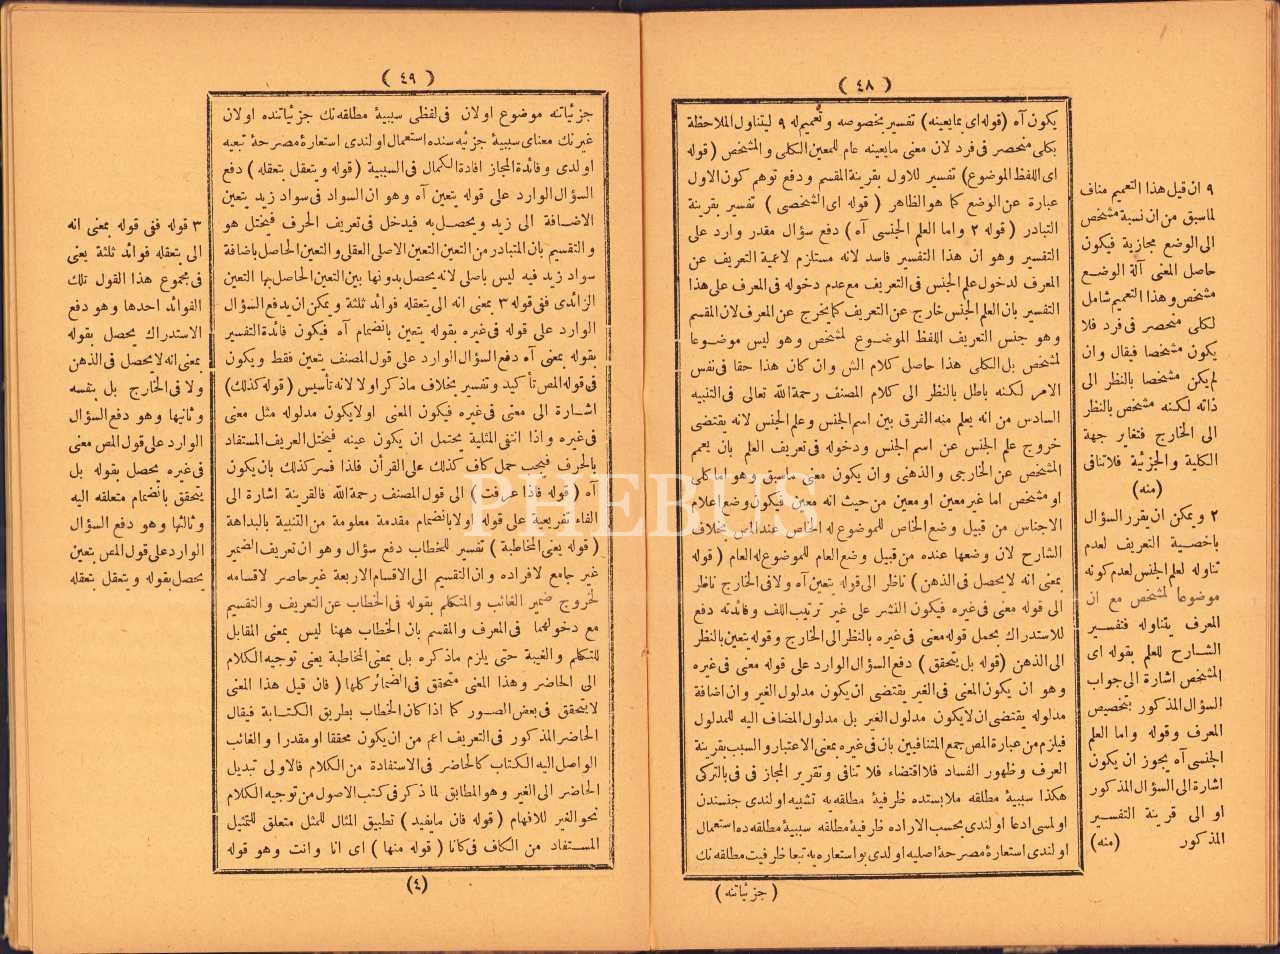 ( ٤٨ )
يكون آه (قوله اى بما يعينه) تفسير بخصوصه وتعميم له ٩ ليتناول الملاحظة
بكلى منحصر فى فرد لان معنى ما يعينه عام للمعين الكلى والمشخص (قوله
اى اللفظ الموضوع) تفسير للاول بقرينة المقسم ودفع توهم كون الاول
عبارة عن الوضع كما هو الظاهر (قوله اى الشخصى) تفسير بقرينة
التبادر (قوله ٢ واما العلم الجنسى آه) دفع سؤال مقدر وارد على
التفسير وهو ان هذا التفسير فاسد لانه مستلزم لاعمية التعريف عن
المعرف لدخول علم الجنس فى التعريف مع عدم دخوله فى المعرف على هذا
التفسير بان العلم الجنس خارج عن التعريف كما يخرج عن المعرف لان المقسم
وهو جنس التعريف اللفظ الموضوع لمشخص وهو ليس موضوعا
لمشخص بل الكلى هذا حاصل كلام الش وان كان هذا حقا فى نفس
الامر لكنه باطل بالنظر الى كلام المصنف رحمة الله تعالى فى التنبيه
السادس من انه يعلم منه الفرق بين اسم الجنس وعلم الجنس لانه يقتضى
خروج علم الجنس عن اسم الجنس ودخوله فى تعريف العلم بان يعمم
المشخص عن الخارجى والذهنى وان يكون معنى ماسبق وهو اما كلى
او مشخص اما غير معين او معين من حيث انه معين فيكون وضع اعلام
الاجناس من قبيل وضع الخاص للموضوع له الخاص عند المص بخلاف
الشارح لان وضعها عنده من قبيل وضع العام للموضوع له العام (قوله
بمعنى انه لا يحصل فى الذهن) ناظر الى قوله يتعين آه ولا فى الخارج ناظر
الى قوله معنى فى غيره فيكون النشر على غير ترتيب اللف وفائدته دفع
للاستدراك بحمل قوله معنى فى غيره بالنظر الى الخارج وقوله يتعين بالنظر
الى الذهن (قوله بل يتحقق) دفع السؤال الوارد على قوله معنى فى غيره
وهو ان يكون المعنى فى الغير يقتضى ان يكون مدلول الغير وان اضافة
مدلوله يقتضى ان لا يكون مدلول الغير بل مدلول المضاف اليه للمدلول
فيلزم من عبارة المص جمع المتنافيين بان فى غيره بمعنى الاعتبار والسبب بقرينة
العرف وظهور الفساد فلا اقتضاء فلا تنافى وتقرير المجاز فى فى بالتركى
هكذا سببية مطلقه ملابسنده ظرفية مطلقه يه تشبيه اولندى جنسندن
اولمسى ادعا اولندى بحسب الاراده ظرفية مطلقه سببية مطلقه ده استعمال
اولندى استعارة مصرحة اصليه اولدى بو استعاره يه تبعا ظرفيت مطلقه نك
( جزئياتنه )
٩ ان قيل هذا التعميم مناف
لما سبق من ان نسبة مشخص
الى الوضع مجازية فيكون
حاصل المعنى آلة الوضع
مشخص وهذا التعميم شامل
لكلى منحصر فى فرد فلا
يكون مشخصا فيقال وان
لم يكن مشخصا بالنظر الى
ذاته لكنه مشخص بالنظر
الى الخارج فتغاير جهة
الكلية والجزئية فلا تنافى
(منه)
٢ ويمكن ان يقرر السؤال
باخصية التعريف لعدم
تناوله لعلم الجنس لعدم كونه
موضوعا لمشخص مع ان
المعرف يتناوله فتفسير
الشارح للعلم بقوله اى
المشخص اشارة الى جواب
السؤال المذكور بتخصيص
المعرف وقوله واما العلم
الجنسى آه يجوز ان يكون
اشارة الى السؤال المذكور
او الى قرينة التفسير
المذكور (منه)
( ٤٩ )
جزئياتنه موضوع اولان فى لفظى سببية مطلقه نك جزئياتنده اولان
غيرنك معناى سببية جزئيه سنده استعمال اولندى استعارة مصرحة تبعيه
اولدى وفائدة المجاز افادة الكمال فى السببية (قوله ويتعقل بتعقله) دفع
السؤال الوارد على قوله يتعين آه وهو ان السواد فى سواد زيد يتعين
الاضافة الى زيد ويحصل به فيدخل فى تعريف الحرف فيختل هو
والتقسيم بان المتبادر من التعين التعين الاصلى العقلى والتعين الحاصل باضافة
سواد زيد فيه ليس باصلى لانه يحصل بدونها بين التعين الحاصل بها التعين
الزائدى ففى قوله ٣ بمعنى انه الى بتعقله فوائد ثلثة ويمكن ان يدفع السؤال
الوارد على قوله فى غيره بقوله يتعين بانضمام آه فيكون فائدة التفسير
بقوله بمعنى آه دفع السؤال الوارد على قول المصنف يتعين فقط ويكون
فى قوله المص تأكيد وتفسير بخلاف ماذكر اولا لانه تأسيس (قوله كذلك)
اشارة الى معنى فى غيره فيكون المعنى اولا يكون مدلوله مثل معنى
فى غيره واذا انتفى المثلية يحتمل ان يكون عينه فيختل العريف المستفاد
بالحرف فيجب حمل كاف كذلك على القرأن فلذا فسر كذلك بان يكون
آه (قوله فاذا عرفت) الى قول المصنف رحمة الله فالقرينة اشارة الى
الفاء تفريعية على قوله اولا بانضمام مقدمة معلومة من التنبية بالبداهة
(قوله يعنى المخاطبة) تفسير للخطاب دفع سؤال وهو ان تعريف الضمير
غير جامع لافراده وان التقسيم الى الاقسام الاربعة غير حاصر لاقسامه
لخروج ضمير الغائب والمتكلم بقوله فى الخطاب عن التعريف والتقسيم
مع دخولهما فى المعرف والمقسم بان الخطاب ههنا ليس بمعنى المقابل
للتكلم والغيبة حتى يلزم ماذكره بل بمعنى المخاطبة يعنى توجيه الكلام
الى الحاضر وهذا المعنى متحقق فى الضمائر كلها (فان قيل هذا المعنى
لا يتحقق فى بعض الصور كما اذا كان الخطاب بطريق الكتابة فيقال
الحاضر المذكور فى التعريف اعم من ان يكون محققا او مقدرا والغائب
الواصل اليه الكتاب كالحاضر فى الاستفادة من الكلام فالاولى تبديل
الحاضر الى الغير وهو المطابق لما ذكر فى كتب الاصول من توجيه الكلام
نحو الغير للافهام (قوله فان مايفيد) تطبيق المثال للممثل متعلق للتمثيل
المستفاد من الكاف فى كانا (قوله منها) اى انا وانت وهو قوله
(٤)
٣ قوله ففى قوله بمعنى انه
الى بتعقله فوائد ثلثة يعنى
فى مجموع هذا القول تلك
الفوائد احدها وهو دفع
الاستدراك يحصل بقوله
بمعنى انه لا يحصل فى الذهن
ولا فى الخارج بل بنفسه
وثانيها وهو دفع السؤال
الوارد على قول المص معنى
فى غيره يحصل بقوله بل
يتحقق بانضمام متعلقه اليه
وثالثها وهو دفع السؤال
الوارد على قول المص يتعين
يحصل بقوله ويتعقل بتعقله
PHEBUS